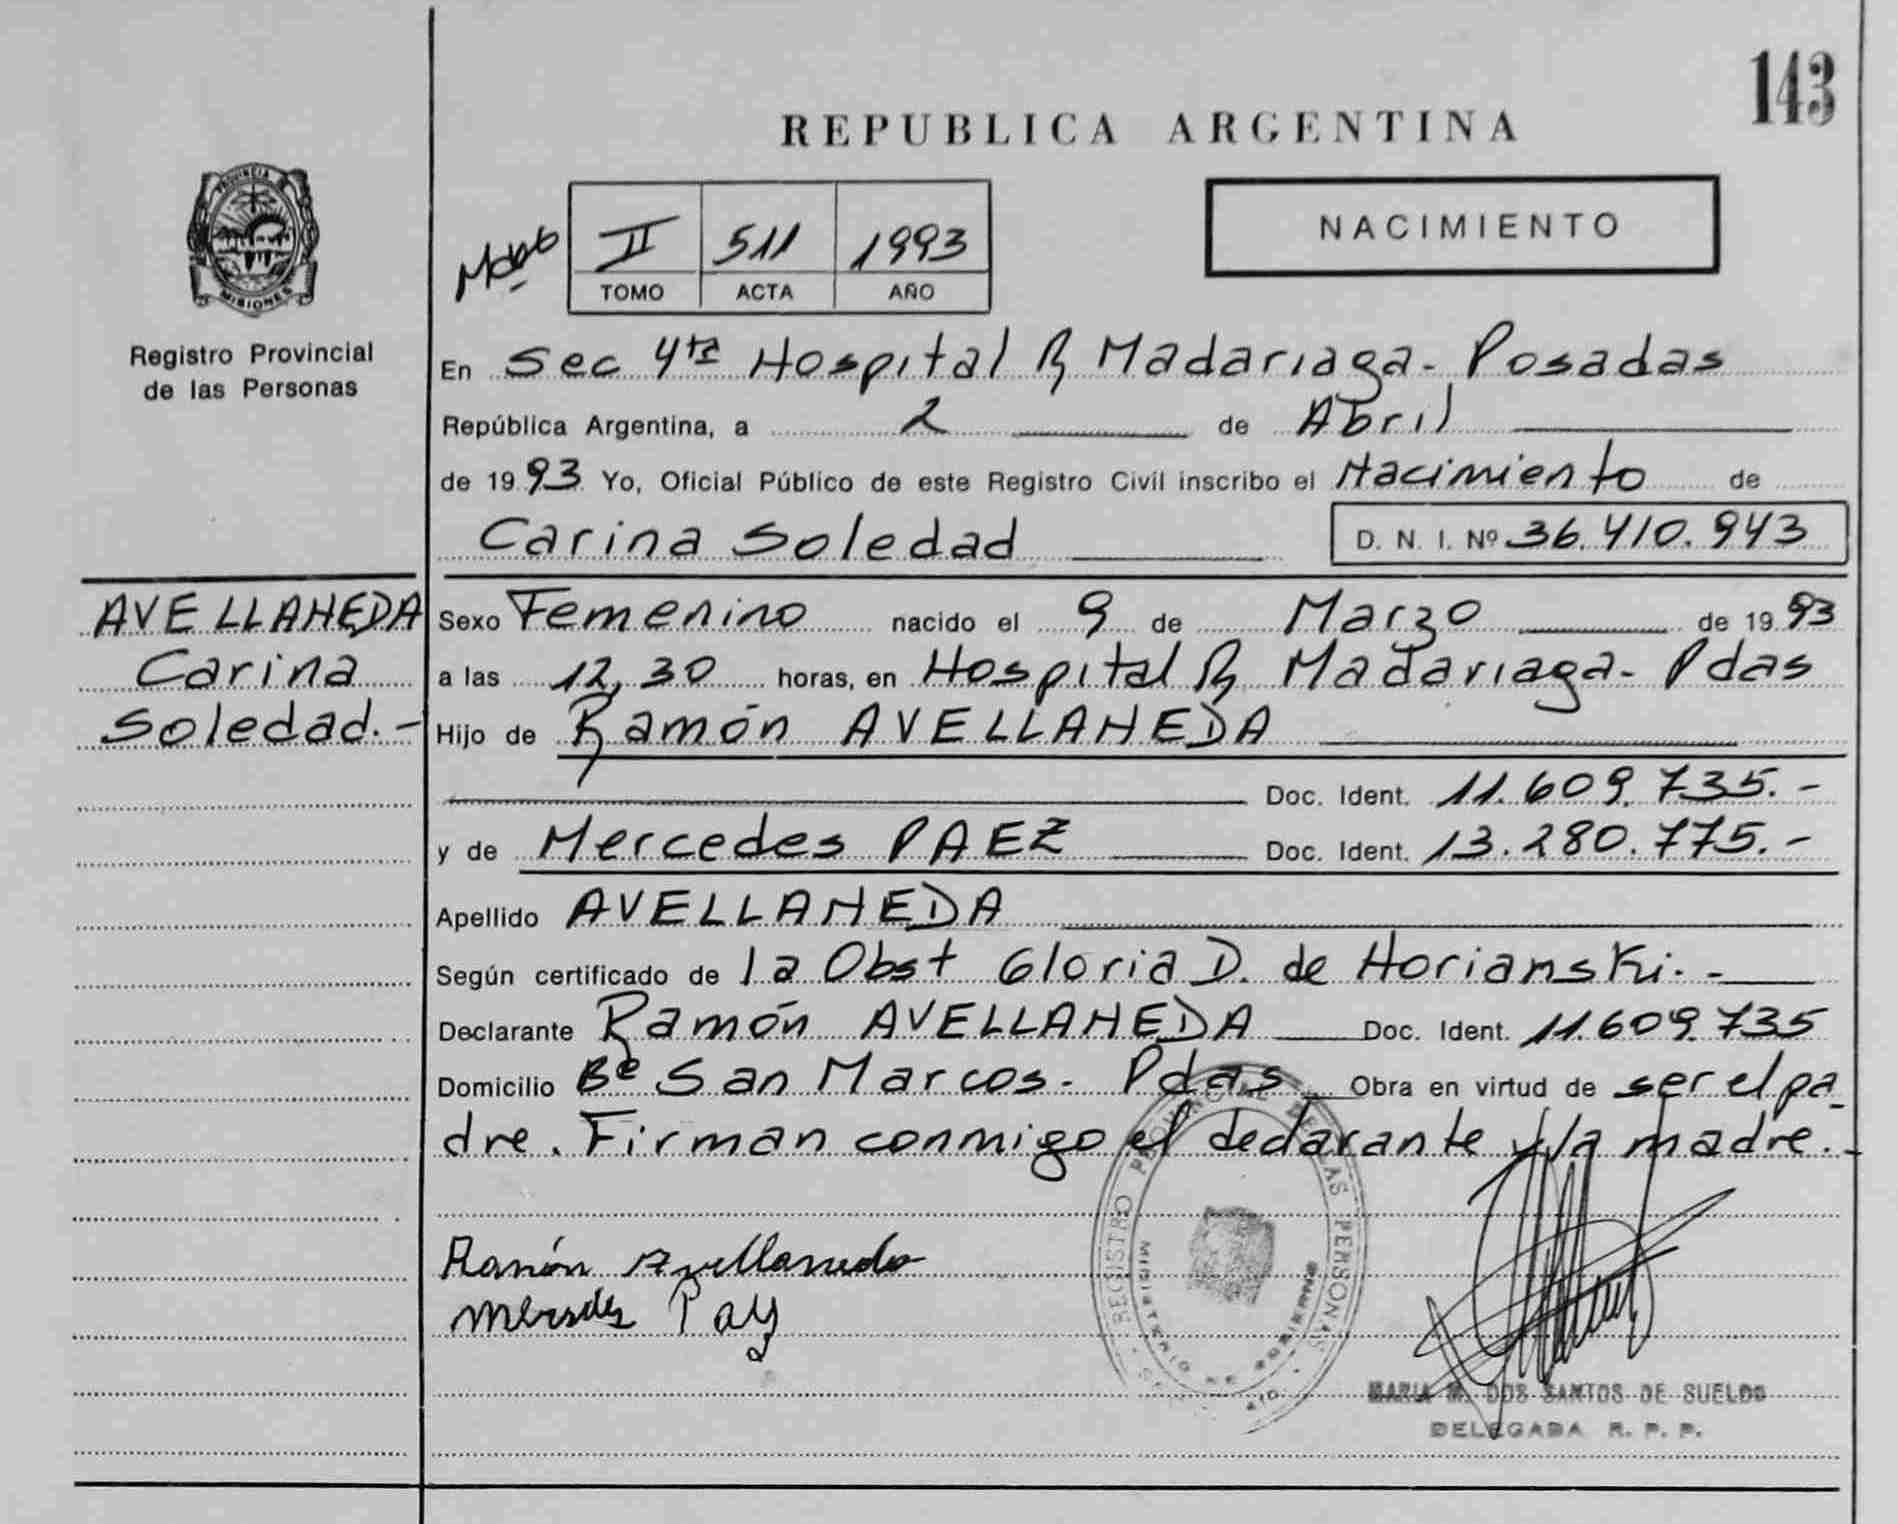 143
REPUBLICA ARGENTINA
PROVINCIA DE
MISIONES
Registro Provincial
de las Personas
II 511 1993
TOMO ACTA AÑO
NACIMIENTO
En Sec 4ta Hospital R Madariaga - Posadas
República Argentina, a 2 de Abril
de 1993 Yo, Oficial Público de este Registro Civil inscribo el Nacimiento de
Carina Soledad D. N. I. Nº 36.410.943
AVELLANEDA
Carina
Soledad.-
Sexo Femenino nacido el 9 de Marzo de 1993
a las 12,30 horas, en Hospital R Madariaga - Pdas
Hijo de Ramón AVELLANEDA
Doc. Ident. 11.609.735.-
y de Mercedes PAEZ Doc. Ident. 13.280.775.-
Apellido AVELLANEDA
Según certificado de la Obst Gloria D. de Horianski.-
Declarante Ramón AVELLANEDA Doc. Ident. 11.609.735
Domicilio Bº San Marcos - Pdas Obra en virtud de ser el pa-
dre. Firman conmigo el declarante y/la madre.-
Ramón Avellaneda
Mersedes Paez
REGISTRO PROVINCIAL DE LAS PERSONAS
MINISTERIO DE GOBIERNO
MARIA M. DOS SANTOS DE SUELDO
DELEGADA R. P. P.